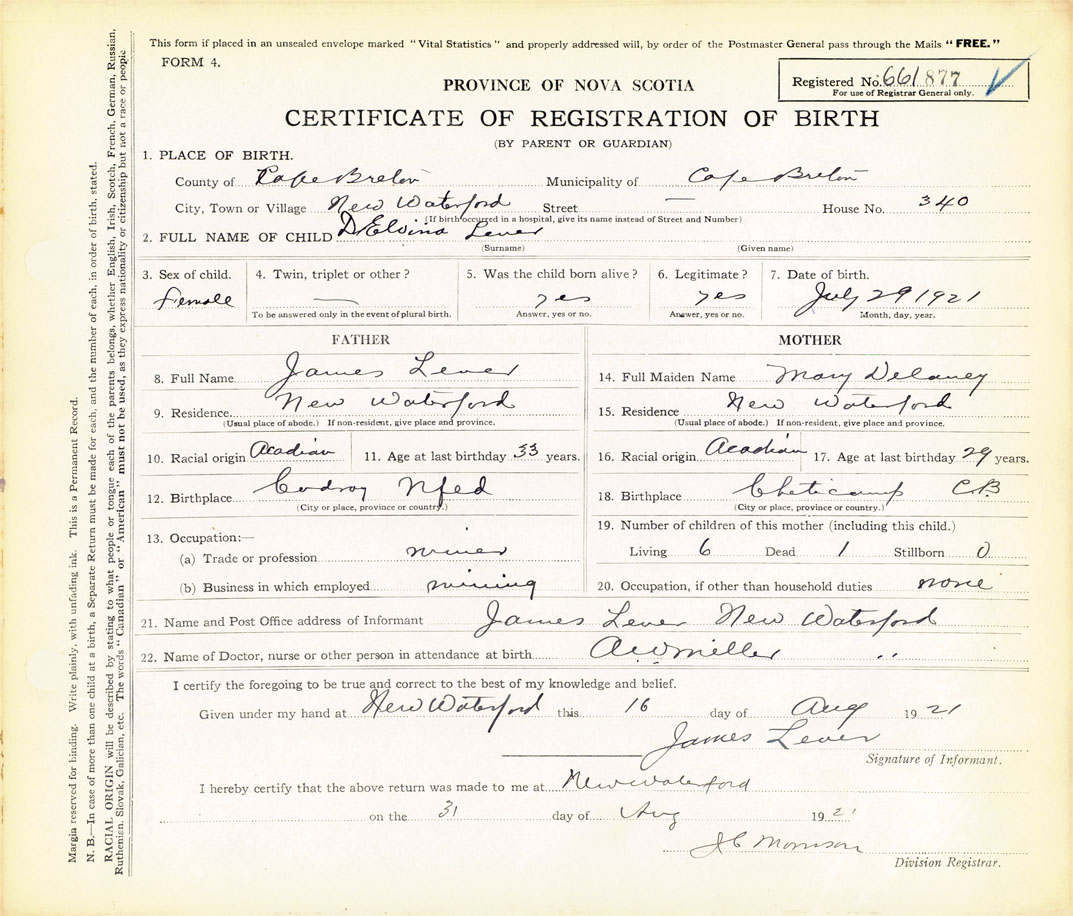 This form if placed in an unsealed envelope marked "Vital Statistics" and properly addressed will, by order of the Postmaster General pass through the Mails "FREE."
FORM 4.
Registered No. 661877
For use of Registrar General only.
PROVINCE OF NOVA SCOTIA
CERTIFICATE OF REGISTRATION OF BIRTH
(BY PARENT OR GUARDIAN)
1. PLACE OF BIRTH.
County of Cape Breton Municipality of Cape Breton
City, Town or Village New Waterford Street — House No. 340
(If birth occurred in a hospital, give its name instead of Street and Number)
2. FULL NAME OF CHILD D Elvina Lever
(Surname) (Given name)
3. Sex of child. 4. Twin, triplet or other? 5. Was the child born alive? 6. Legitimate? 7. Date of birth.
female — yes yes July 29 1921
To be answered only in the event of plural birth. Answer, yes or no. Answer, yes or no. Month, day, year.
FATHER
8. Full Name James Lever
9. Residence New Waterford
(Usual place of abode.) If non-resident, give place and province.
10. Racial origin Acadian 11. Age at last birthday 33 years.
12. Birthplace Codroy Nfed
(City or place, province or country.)
13. Occupation:—
(a) Trade or profession miner
(b) Business in which employed mining
MOTHER
14. Full Maiden Name Mary Delaney
15. Residence New Waterford
(Usual place of abode.) If non-resident, give place and province.
16. Racial origin Acadian 17. Age at last birthday 29 years.
18. Birthplace Cheticamp CB
(City or place, province or country.)
19. Number of children of this mother (including this child.)
Living 6 Dead 1 Stillborn 0
20. Occupation, if other than household duties none
21. Name and Post Office address of Informant James Lever New Waterford
22. Name of Doctor, nurse or other person in attendance at birth AW Miller "
I certify the foregoing to be true and correct to the best of my knowledge and belief.
Given under my hand at New Waterford this 16 day of Aug 1921
James Lever
Signature of Informant.
I hereby certify that the above return was made to me at New Waterford
on the 31 day of Aug 192
JC Morrison
Division Registrar.
Margin reserved for binding. Write plainly, with unfading ink. This is a Permanent Record.
N. B.—In case of more than one child at a birth, a Separate Return must be made for each, and the number of each, in order of birth, stated.
RACIAL ORIGIN will be described by stating to what people or tongue each of the parents belongs, whether English, Irish, Scotch, French, German, Russian,
Ruthenian, Slovak, Galician, etc. The words "Canadian" or "American" must not be used, as they express nationality or citizenship but not a race or people